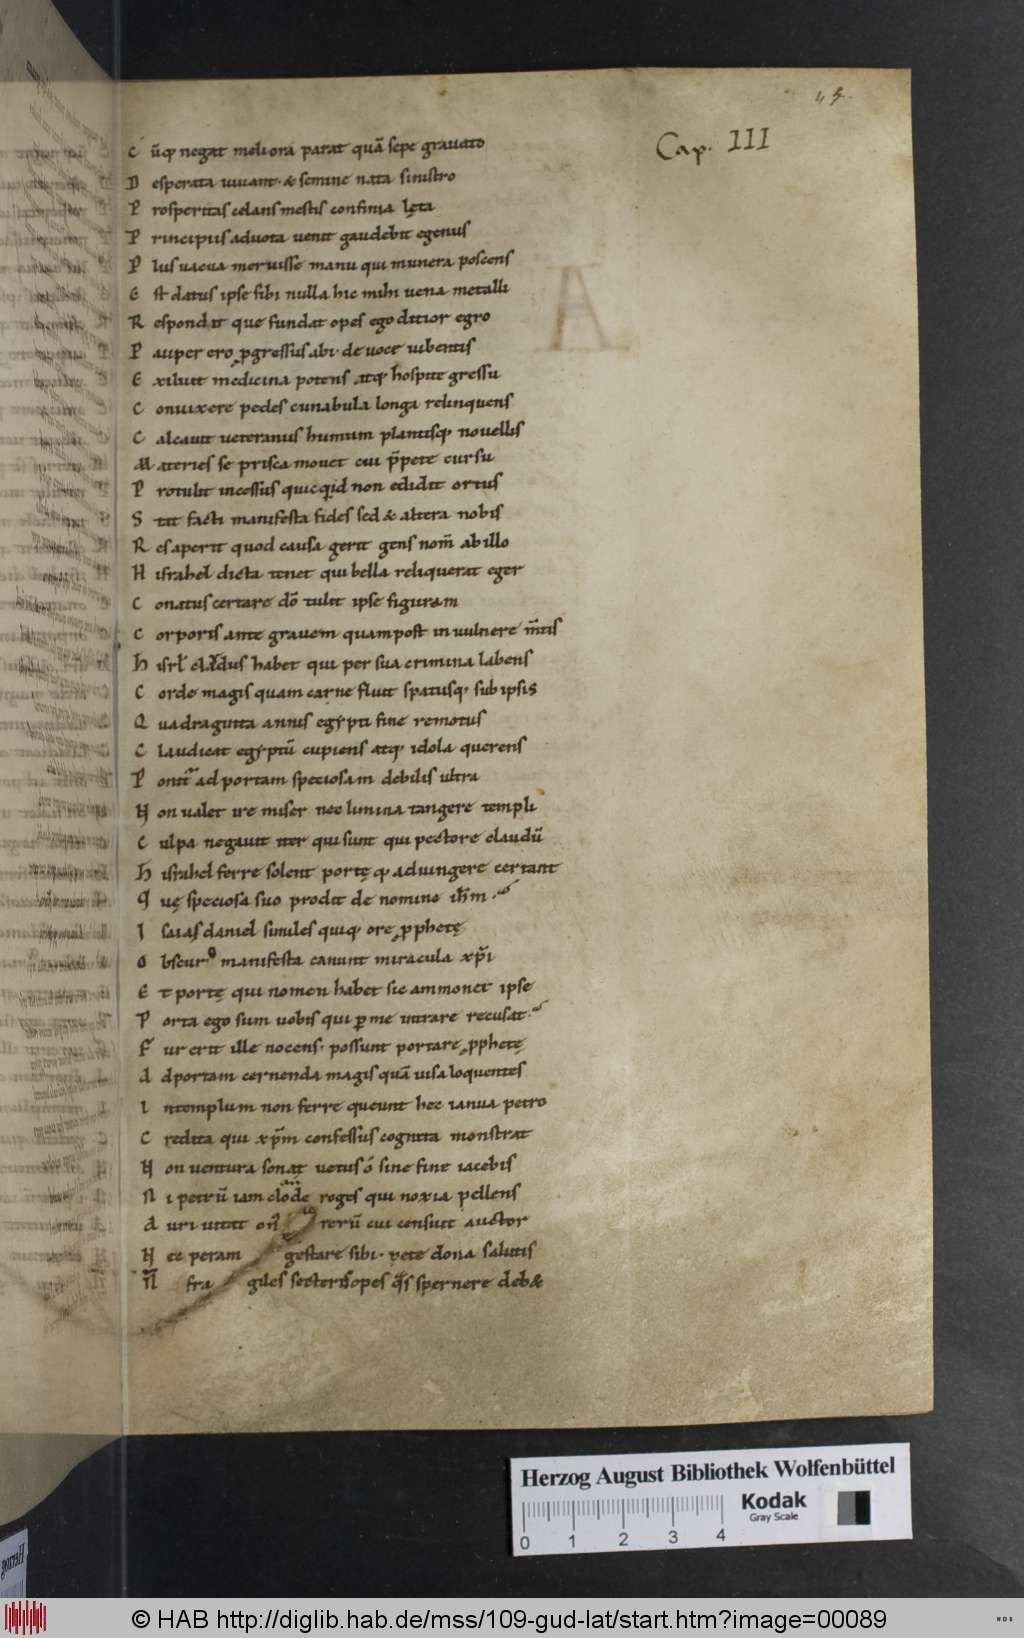 45.
Cap. III
C ũq; negat meliora parat quã sepe grauato
D esperata iuuant· & semine nata sinistro
P rosperitas celans mestis confinia lęta
P rincipiis aduota uenit gaudebit egenus
P lus uacua meruisse manu qui munera poscens
E st datus ipse sibi nulla hic mihi uena metalli
R espondit que fundat opes ego ditior egro
P auper ero ꝓgressus abi· de uoce iubentis
E xiluit medicina potens atq; hospite gressu
C onuixere pedes cunabula longa relinquens
C alcauit ueteranus humum plantisq; nouellis
M ateries se prisca mouet cui p̃pete cursu
P rotulit incessus quicquid non edidit ortus
S tit facti manifesta fides sed & altera nobis
R es aperit quod causa gerit gens nom̃ ab illo
H israhel dicta tenet qui bella reliquerat eger
C onatus certare dõ tulit ipse figuram
C orporis ante grauem quam post in uulnere m̃tis
H isrl̃ claudus habet qui per sua crimina labens
C orde magis quam carne fluit spatiisq; sub ipsis
Q uadraginta annis egypti fine remotus
C laudicat egyptũ cupiens atq; idola querens
P onit̃ ad portam speciosam debilis ultra
N on ualet ire miser nec limina tangere templi
C ulpa negauit iter qui sunt qui pectore claudũ
H israhel ferre solent portę q; adiungere certant
Q uę speciosa suo prodit de nomine ih̃m·
I saias daniel similes quiq; ore ꝓphetę
O bscuro manifesta canunt miracula xp̃i
E t portę qui nomen habet sic ammonet ipse
P orta ego sum uobis qui ꝑ me intrare recusat·
F ur erit ille nocens· possunt portare ꝓphetę
A d portam cernenda magis quã uisa loquentes
I n templum non ferre queunt hec ianua petro
C redita qui xp̃m confessus cognita monstrat
N on uentura sonat uetus ó sine fine iacebis
N i petrũ iam clode roges qui noxia pellens
A uri uitat on̅ rerũ cui censuit auctor
N ec peram gestare sibi· pete dona salutis
N fra giles secteris opes q̃s spernere deb&
Herzog August Bibliothek Wolfenbüttel
Kodak
Gray Scale
0 1 2 3 4
© HAB http://diglib.hab.de/mss/109-gud-lat/start.htm?image=00089